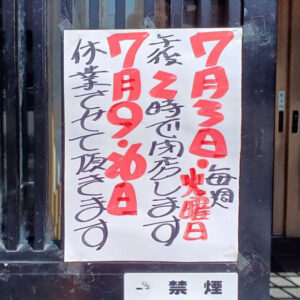 7月3日・毎週火曜日
午後2時で閉店します
7月9・10日
休業させて頂きます
禁煙